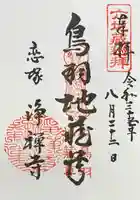 奉拝
令和三年
八月二十二日
鳥羽地蔵尊
恋塚
浄禅寺